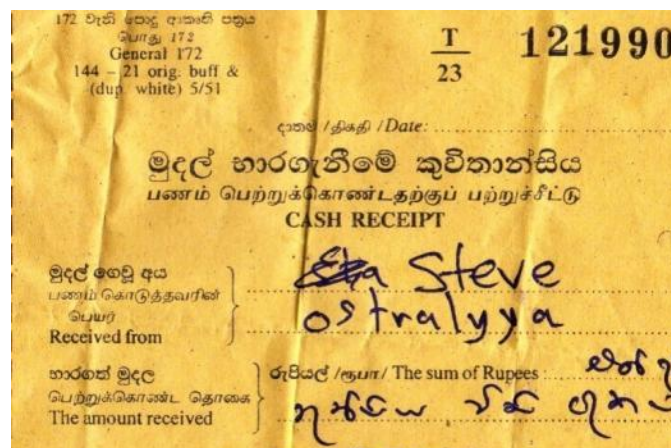 172 වැනි පොදු ආකෘති පත්‍රය
பொது 172
General 172
144 – 21 orig. buff &
(dup. white) 5/51
T
23
121990
දාතම / திகதி / Date:
මුදල් භාරගැනීමේ කුවිතාන්සිය
பணம் பெற்றுக்கொண்டதற்குப் பற்றுச்சீட்டு
CASH RECEIPT
මුදල් ගෙවූ අය
பணம் கொடுத்தவரின்
பெயர்
Received from
Steve
ostralyya
භාරගත් මුදල
பெற்றுக்கொண்ட தொகை
The amount received
රුපියල් / ரூபா / The sum of Rupees :